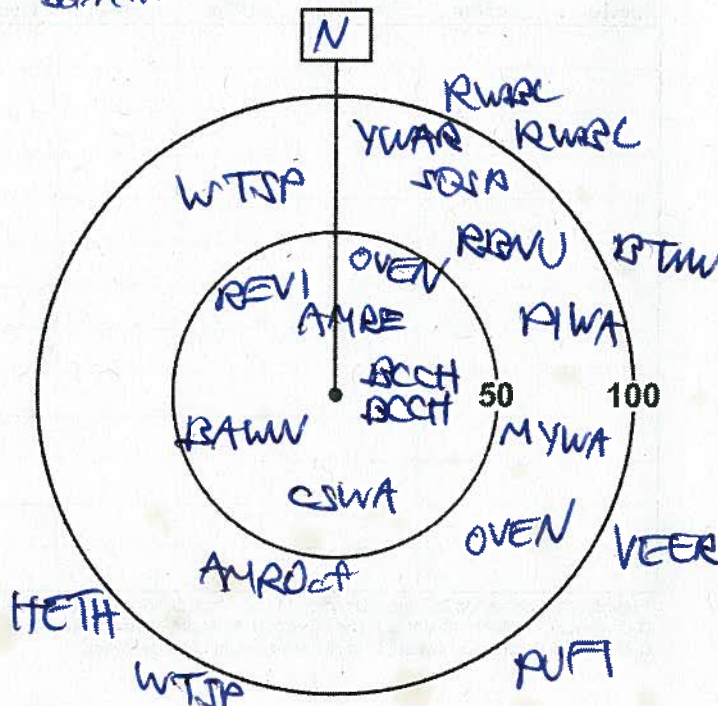 N
RWBL
YWAR RWBL
WTSP SOSP
RBNU BTNW
OVEN
REVI
AMRE PIWA
BCCH
BCCH 50 100
BAWW MYWA
CSWA
OVEN VEER
AMRO cf
HETH
PUFI
WTSP